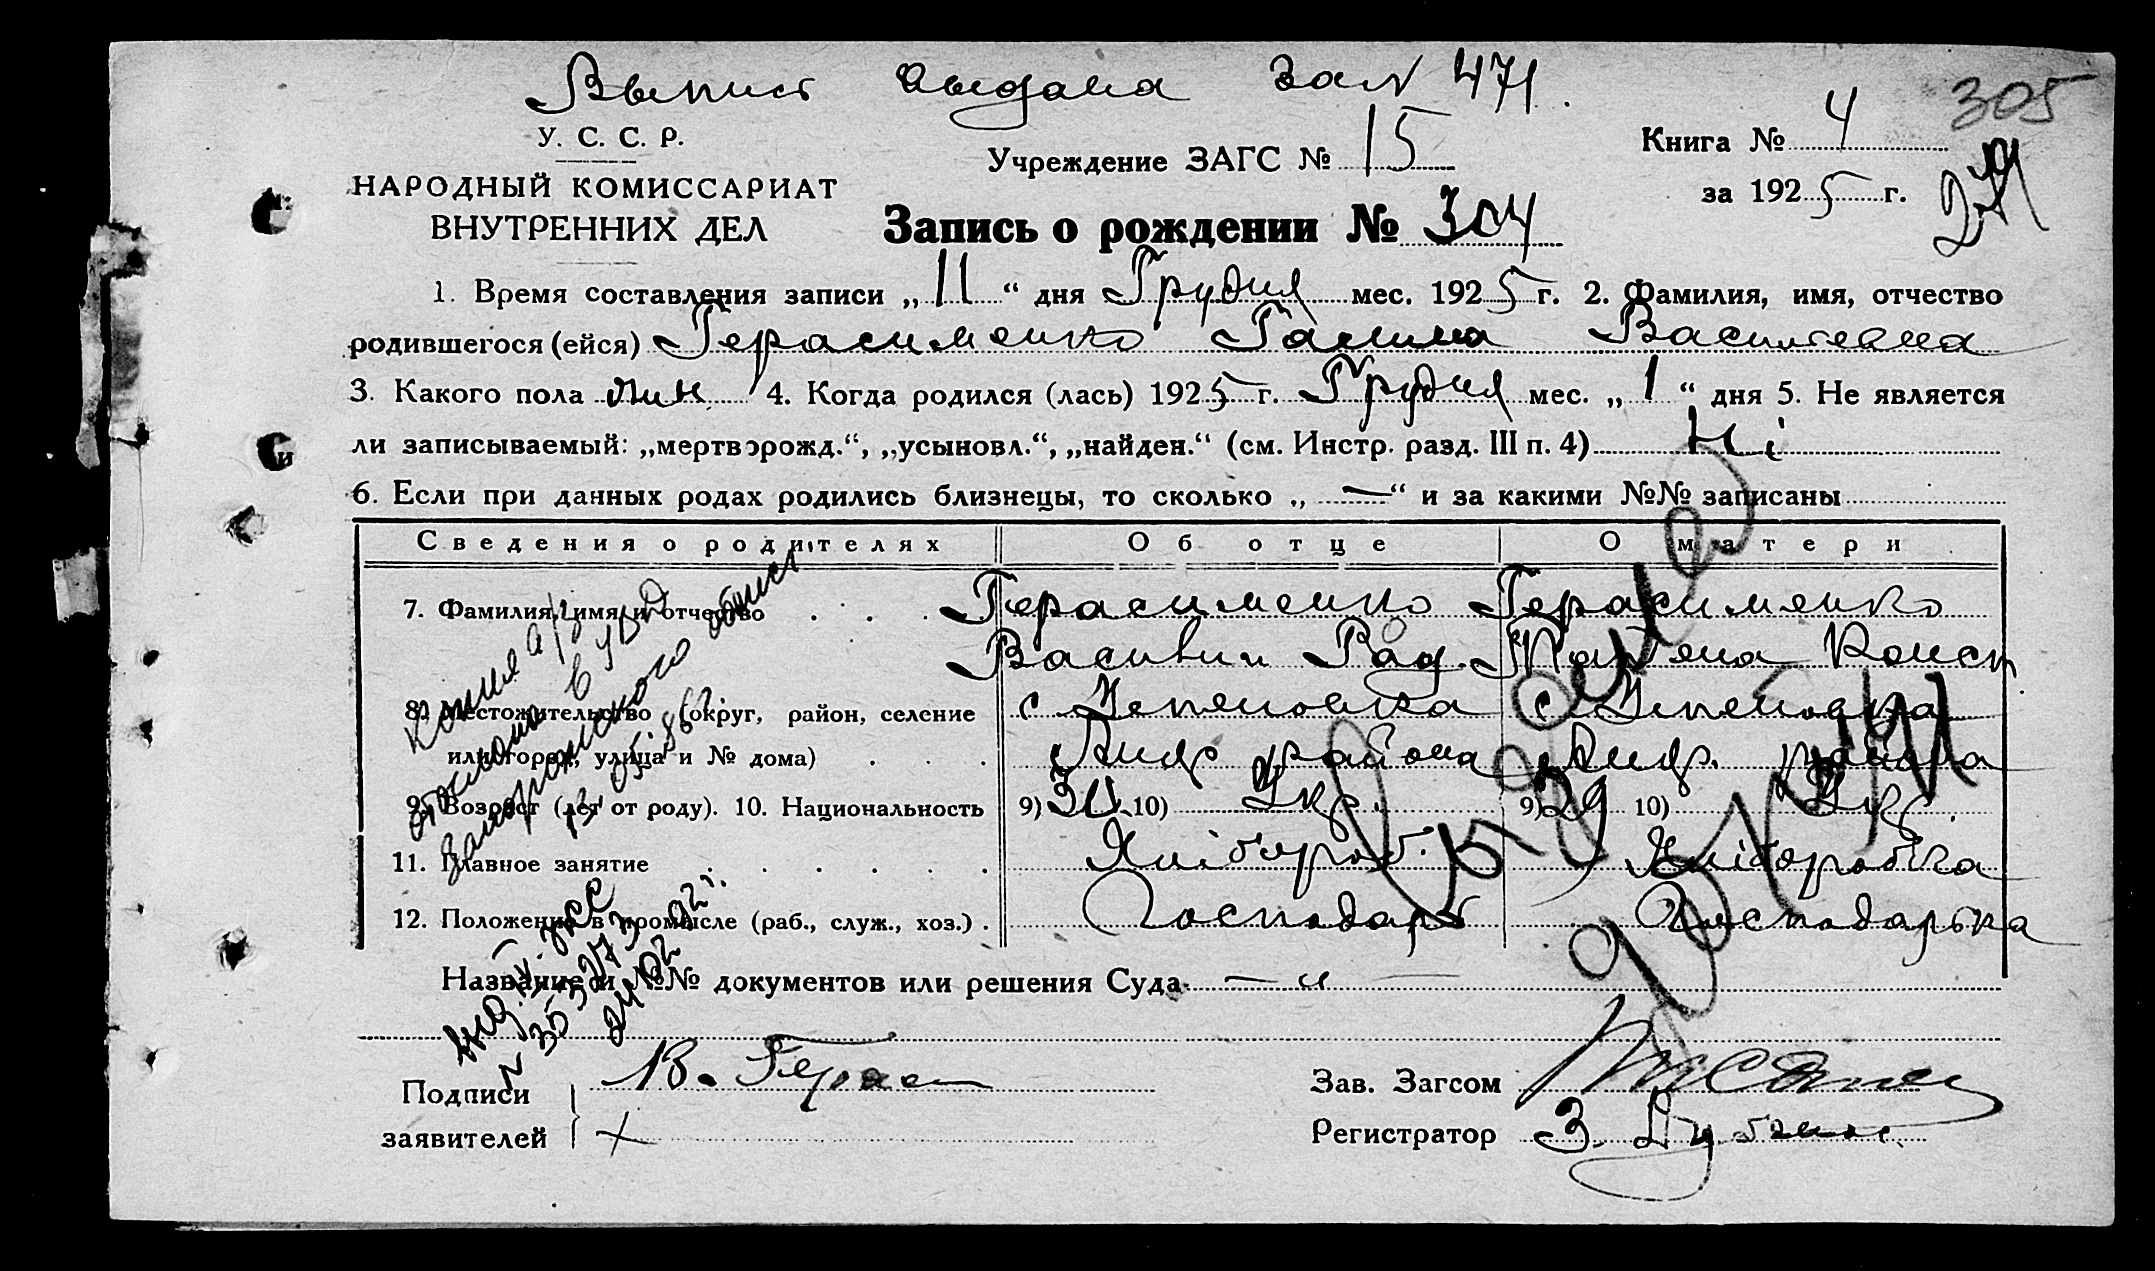 Выпись выдана за № 471.
305
У. С. С. Р.
НАРОДНЫЙ КОМИССАРИАТ
ВНУТРЕННИХ ДЕЛ
Учреждение ЗАГС № 15
Книга № 4
за 1925 г.
Запись о рождении № 304
1. Время составления записи „ 11 “ дня Грудня мес. 1925 г. 2. Фамилия, имя, отчество
родившегося (ейся) Герасименко Галина Васильевна
3. Какого пола жін. 4. Когда родился (лась) 1925 г. Грудня мес. „ 1 “ дня 5. Не является
ли записываемый: „мертворожд.“, „усыновл.“, „найден.“ (см. Инстр. разд. III п. 4) Ні
6. Если при данных родах родились близнецы, то сколько „ — “ и за какими №№ записаны
Сведения о родителях Об отце О матери
7. Фамилия, имя и отчество Герасименко Герасименко
Тат'яна Конст
8. Местожительство (округ, район, селение с с
или город, улица и № дома) района района
9. Возраст (лет от роду). 10. Национальность 9) 30 10) Укр. 9) 29 10) Укр.
11. Главное занятие Хлібороб. Хліборобка
12. Положение в промысле (раб., служ., хоз.) Господарь Господарька
Название и №№ документов или решения Суда — „ —
Копия а/з
отослана в УВД
Запорожского облисп
13.05.86 г.
Выдано
471
Подписи
заявителей
В. Герасим
+
Зав. Загсом
Регистратор З.